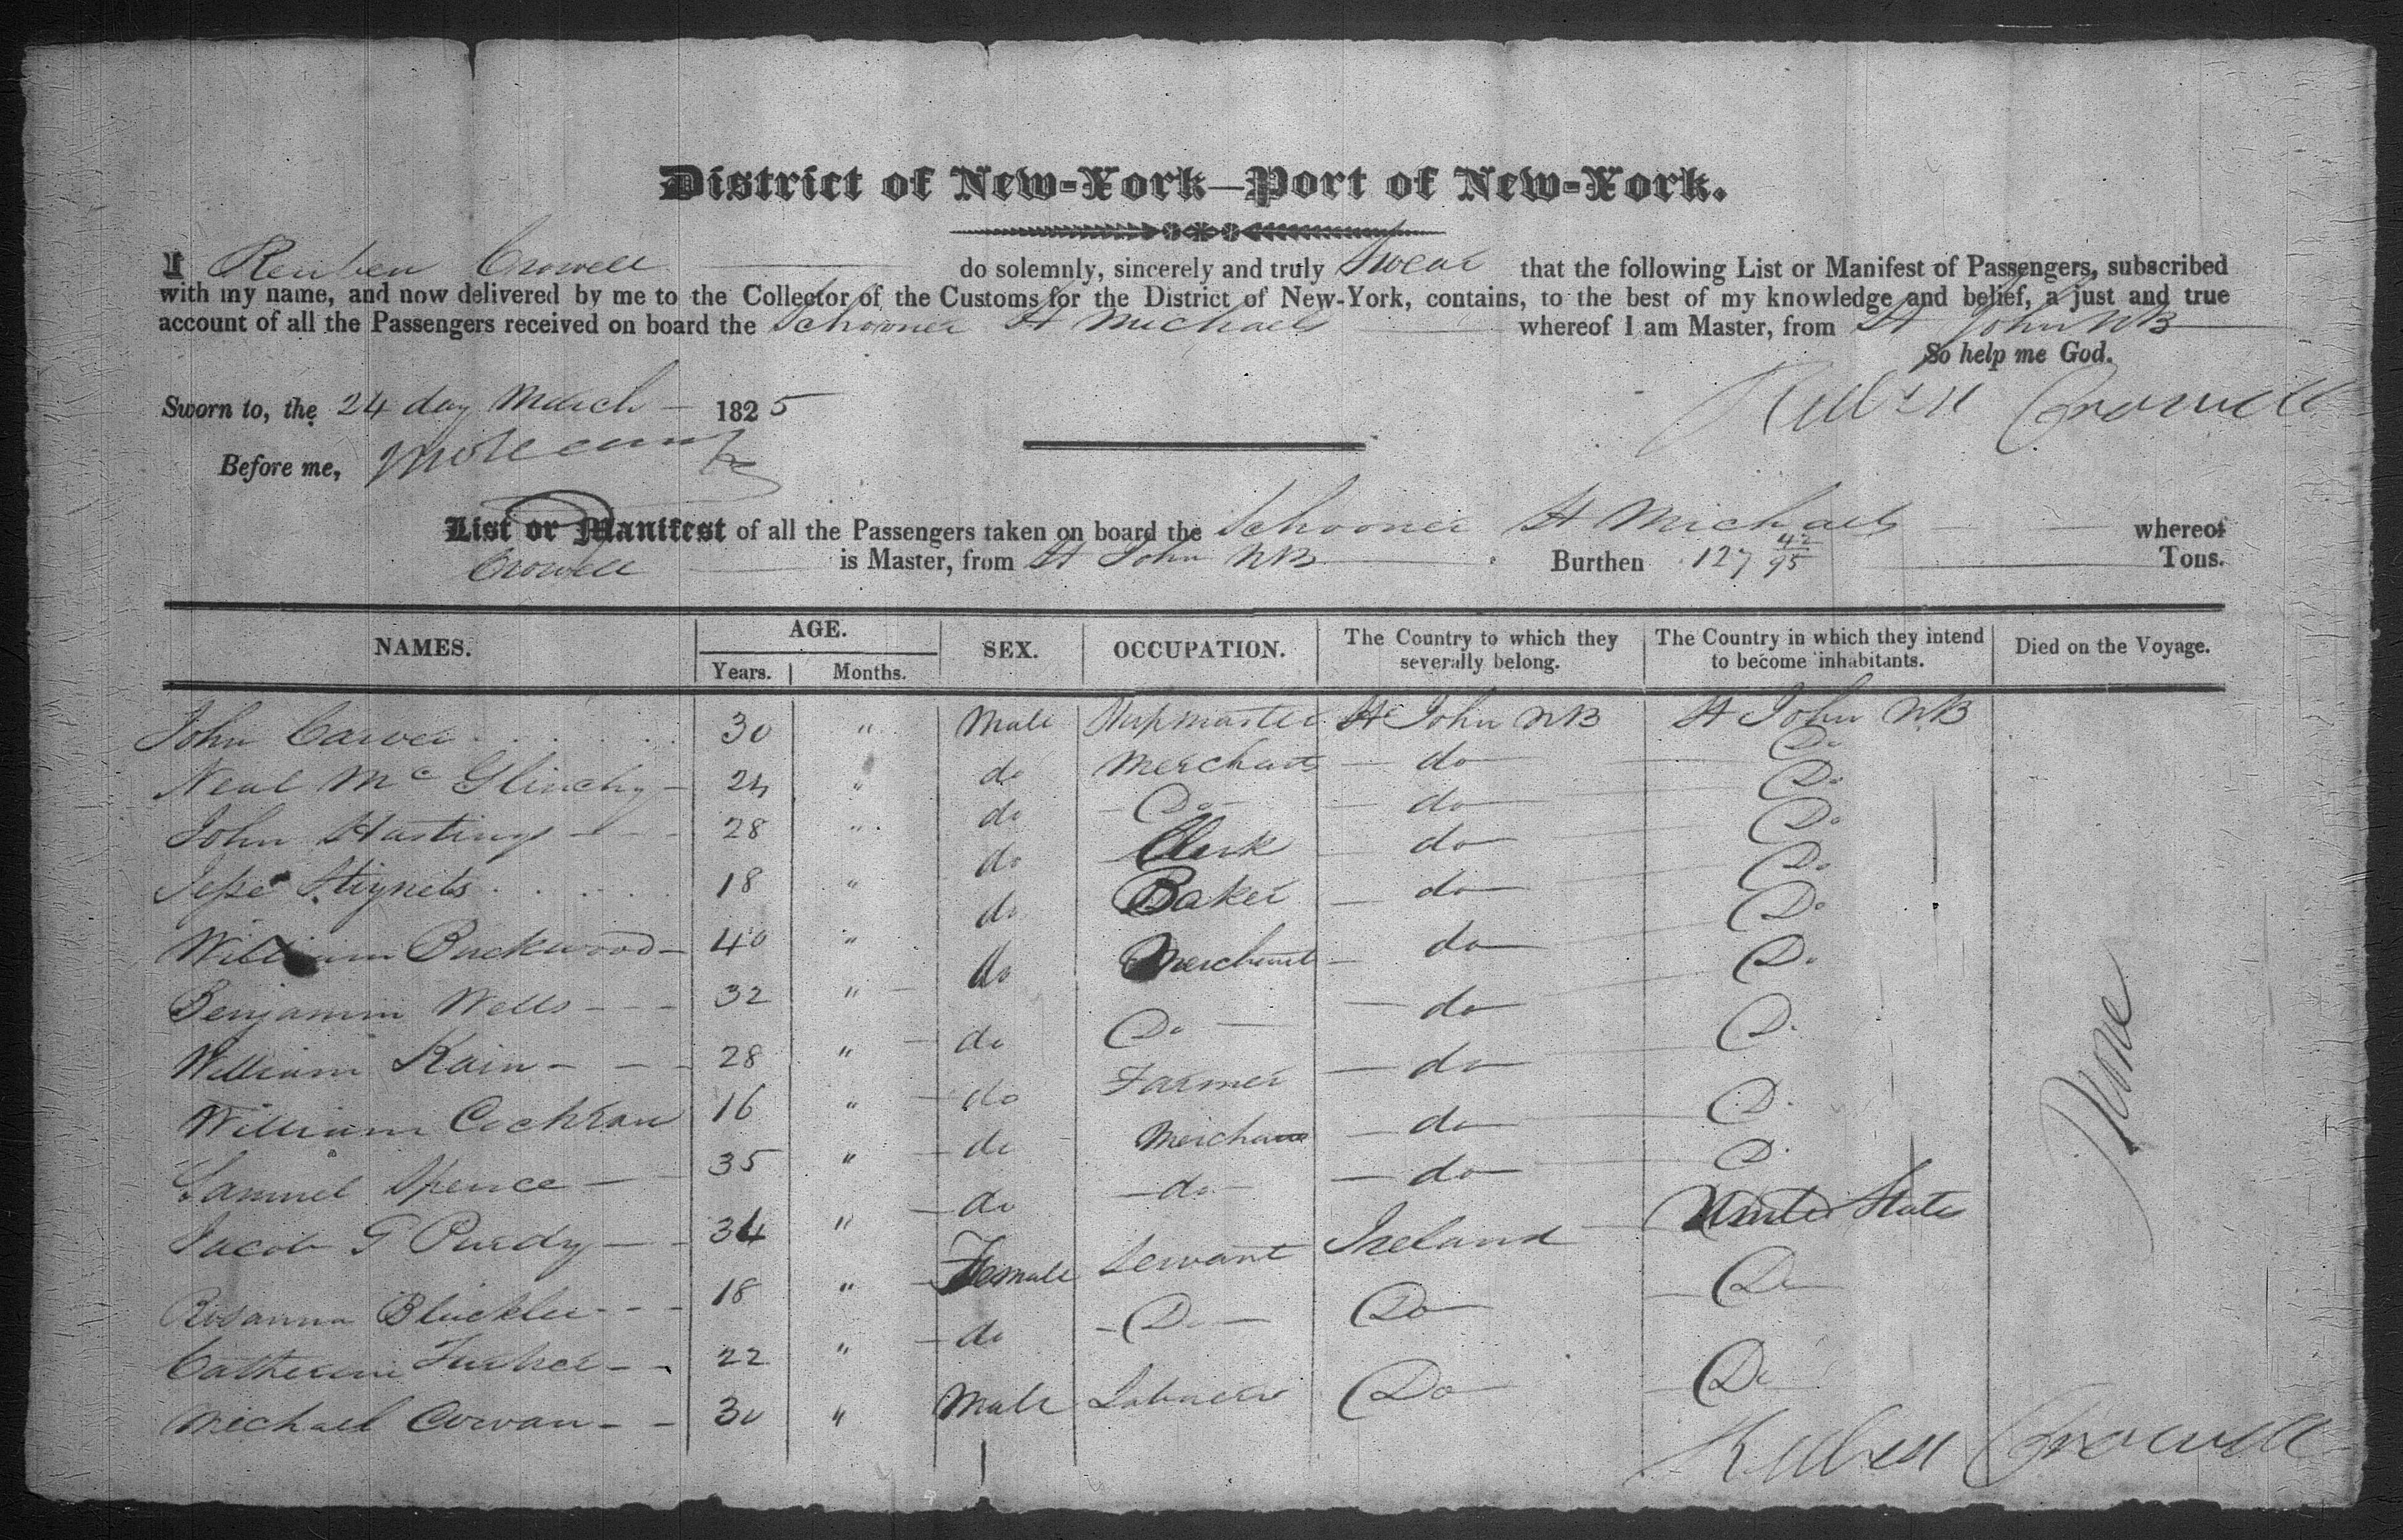 District of New-York—Port of New-York.
I Reuben Crowell do solemnly, sincerely and truly Swear that the following List or Manifest of Passengers, subscribed
with my name, and now delivered by me to the Collector of the Customs for the District of New-York, contains, to the best of my knowledge and belief, a just and true
account of all the Passengers received on board the Schooner St Michaels whereof I am Master, from St John NB
So help me God.
Sworn to, the 24 day March 1825
Reuben Crowell
Before me,
List or Manifest of all the Passengers taken on board the Schooner St Michaels whereof
Crowell is Master, from St John NB Burthen 127 42/95 Tons.
NAMES. AGE. Years. Months. SEX. OCCUPATION. The Country to which they severally belong. The Country in which they intend to become inhabitants. Died on the Voyage.
John Carver 30 " Male St John NB St John NB
Neal Mc Glinchy 24 " do Merchant do Do
John Hastings 28 " do Do do Do
Jesse 18 " do Clerk do Do
William Buckwood 40 " do Baker do Do
Benjamin Wells 32 " do Merchant do Do
William Kain 28 " do Do do Do
William Cochran 16 " do Farmer do Do
Samuel Spence 35 " do Merchant do Do
Jacob G Purdy 34 " do do do Do
Rosanna 18 " Female Servant Ireland United State
Catherine 22 " do Do Do Do
Michael 30 " Male Labourer Do Do
None
Reuben Crowell